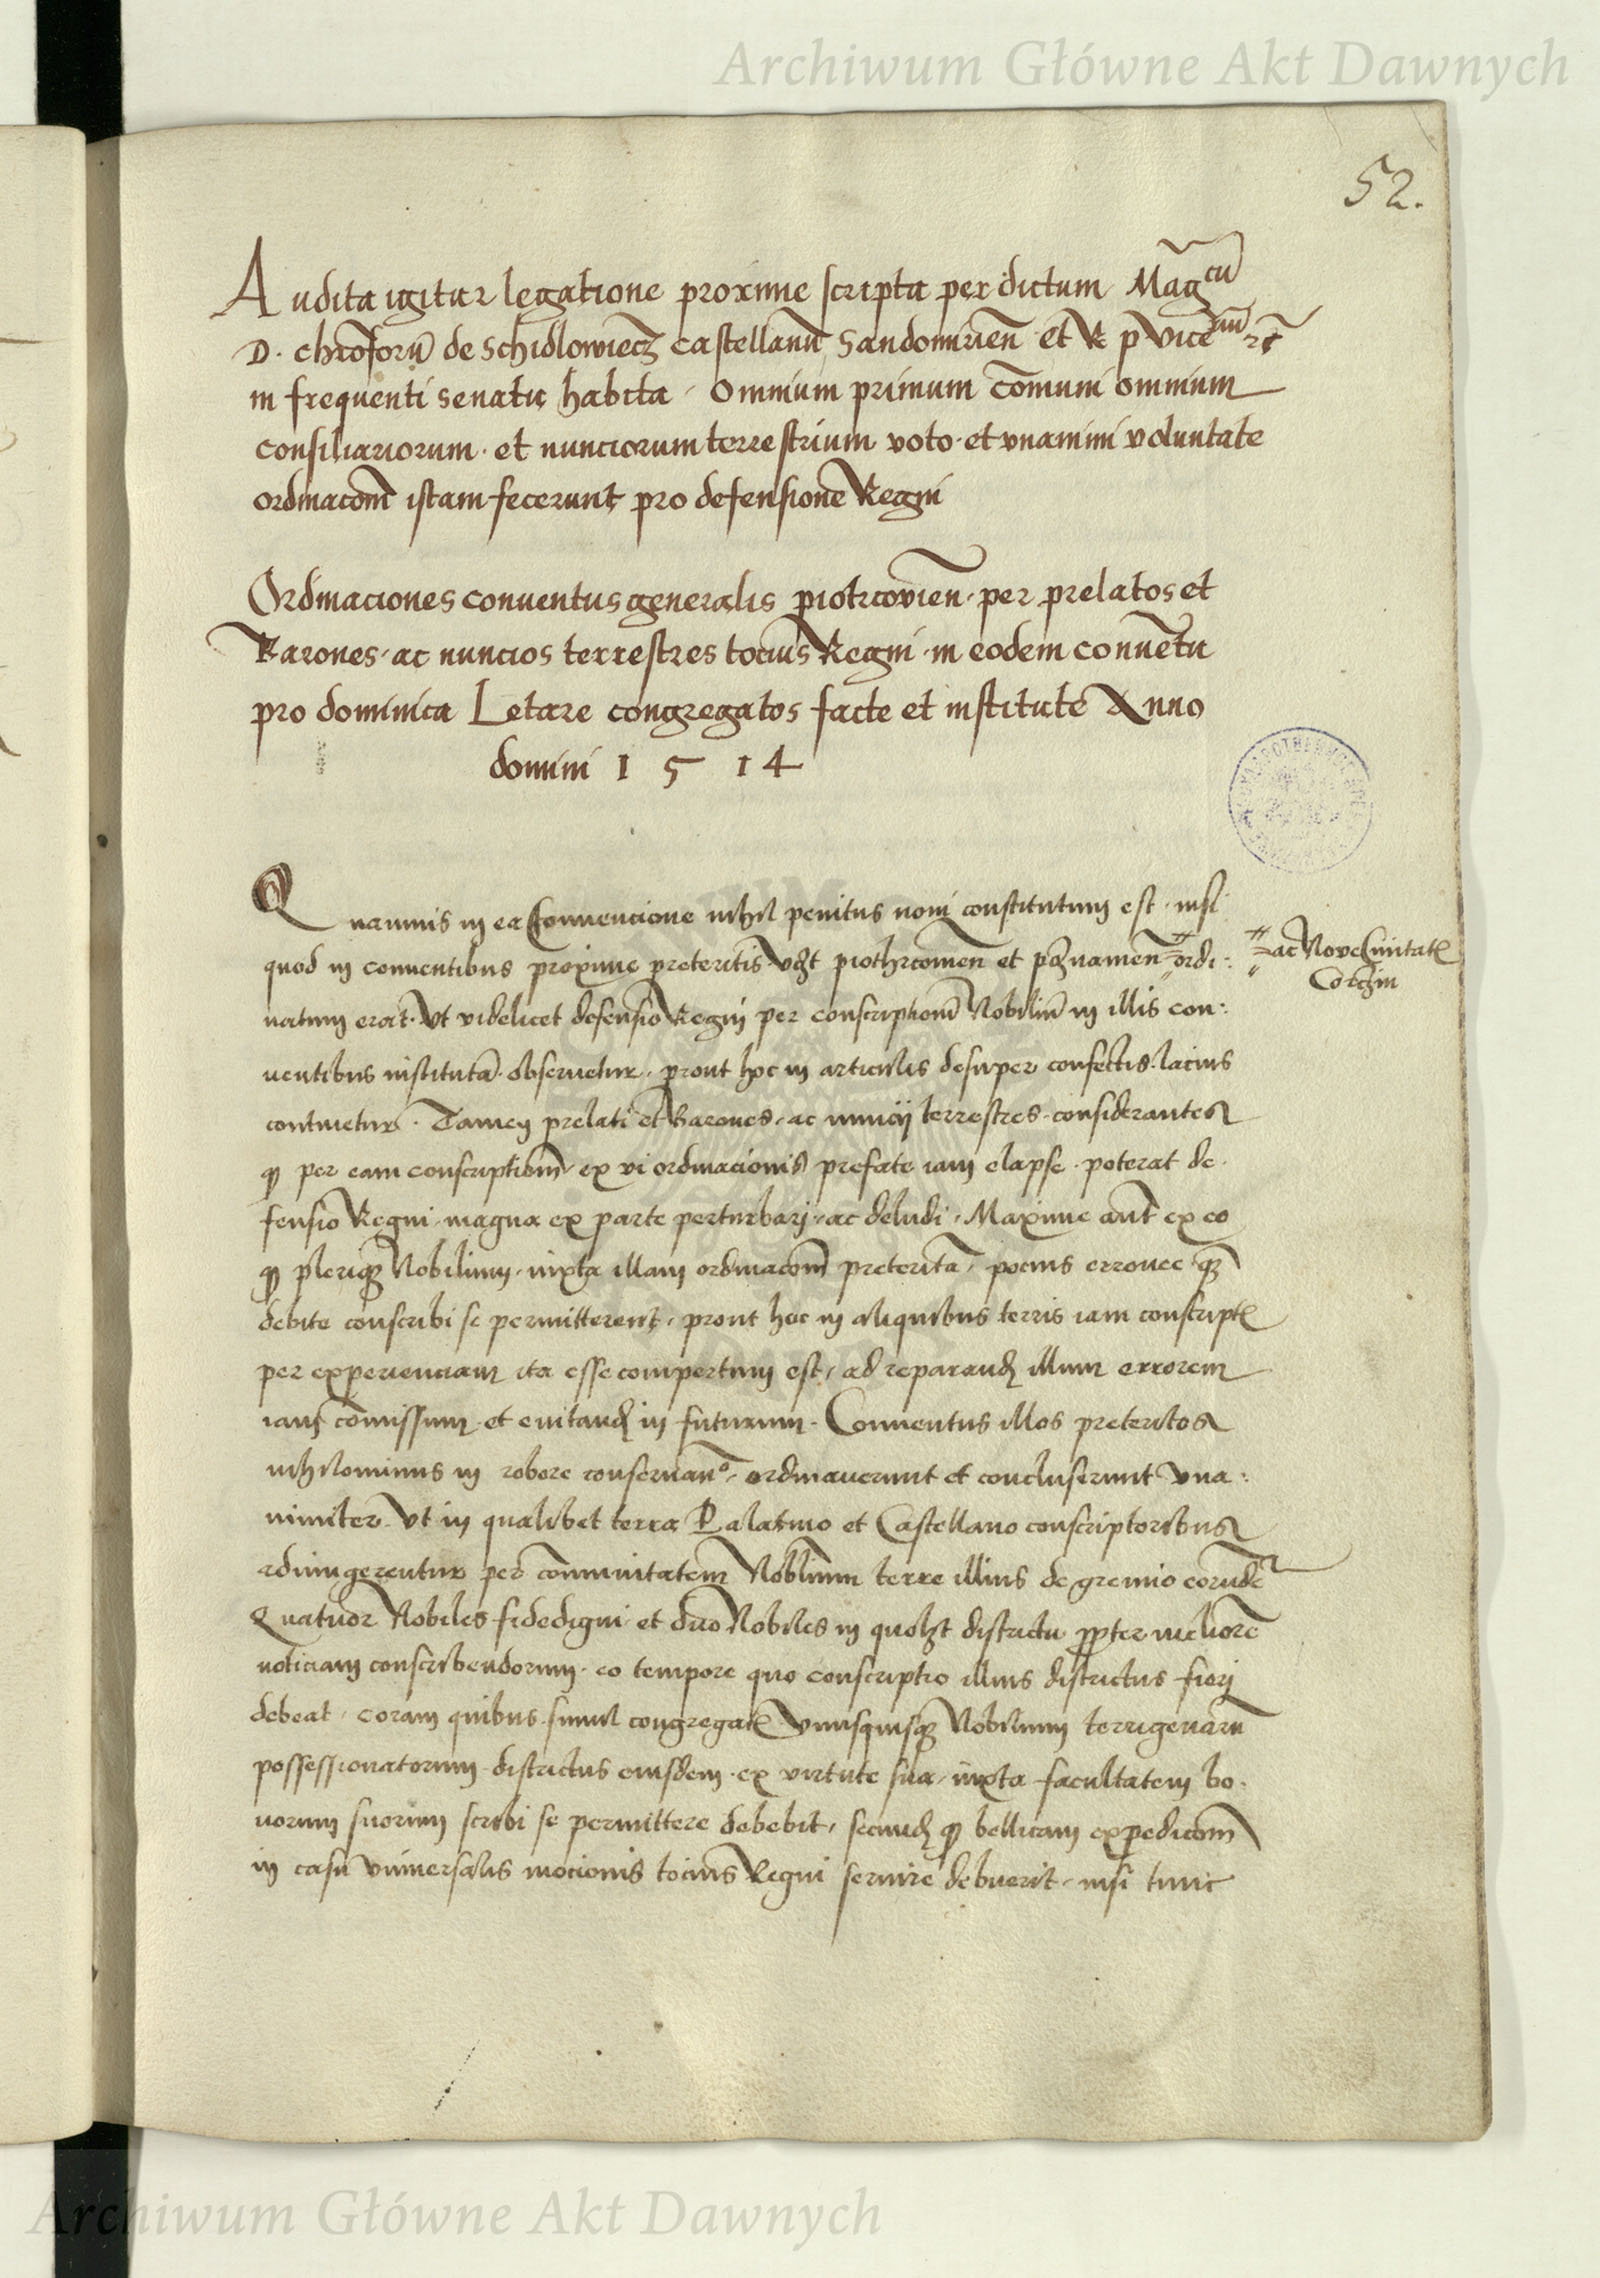 Archiwum Główne Akt Dawnych
52.
Audita igitur legatione proxime scripta per dictum Mag^cu̅
D. chr̅oforu̅ de Schidlowiecz castellanu̅ Sandomirien̅ et R p vice^um
in frequenti senatu habita. Omnium primum co̅muni omnium
consiliariorum. et nunciorum terrestrium voto. et unanimi voluntate
ordinaco̅m istam fecerunt pro defensione Regni
Ordinaciones conventus generalis piotrcovien̅. per prelatos et
Barones. ac nuncios terrestres tocius Regni. in eodem conve̅tu
pro dominica Letare congregatos facte et institute Anno
domini 1514
Quamvis in ea Convencione nihil penitus novi constitutum est. nisi
quod in conventibus proxime preteritis. vcꝫt piothrcovien̅ et poznanien̅ ordi:
ac Nove Civitatꝭ
Corczin
natum erat. Ut videlicet defensio Regni per conscriptione̅ Nobiliu̅ in illis con:
ventibus instituta̅. observetur. prout hoc in articulis desuper confectis. lacius
continetur. Tamen prelati et Barones. ac nuncij terrestres. considerantes
ꝙ per eam conscriptiom̅. ex vi ordinacionis prefate iam elapse. poterat de.
fensio Regni. magna ex parte perturbari. ac deludi. Maxime aut̅ ex eo
ꝙ pleriqꝫ Nobilium. iuxta illam ordinaco̅m preterita̅. pocius erronee qꝫ̅
debite conscribi se permitterent. prout hoc in aliquibus terris iam conscriptꝭ
per experienciam ita esse compertum est. ad reparand̨ illum errorem
iam co̅missum. et evitand̨ in futurum. Conventus illos preteritos
nihilominus in robore conservan^o. ordinaverunt et concluserunt una:
nimiter. Ut in qualibet terra Palatino et Castellano conscriptoribus
adiungerentur per co̅munitatem Nobilium terre illius de gremio eorunde̅
Quatuor Nobiles fidedigni. et duo Nobiles in quolꝫt districtu ꝓpter meliore̅
noticiam conscribendorum. eo tempore quo conscriptio illius districtus fieri
debeat. coram quibus. simul congregatꝭ unusquisqꝫ Nobilium terrigenaru̅
possessionatorum. districtus eiusdem. ex virtute sua. iuxta facultatem bo.
norum suorum scribi se permittere debebit. secund̨ ꝙ bellicam expedico̅m
in casu universalis mocionis tocius Regni servire debuerit. nisi tunc
Archiwum Główne Akt Dawnych